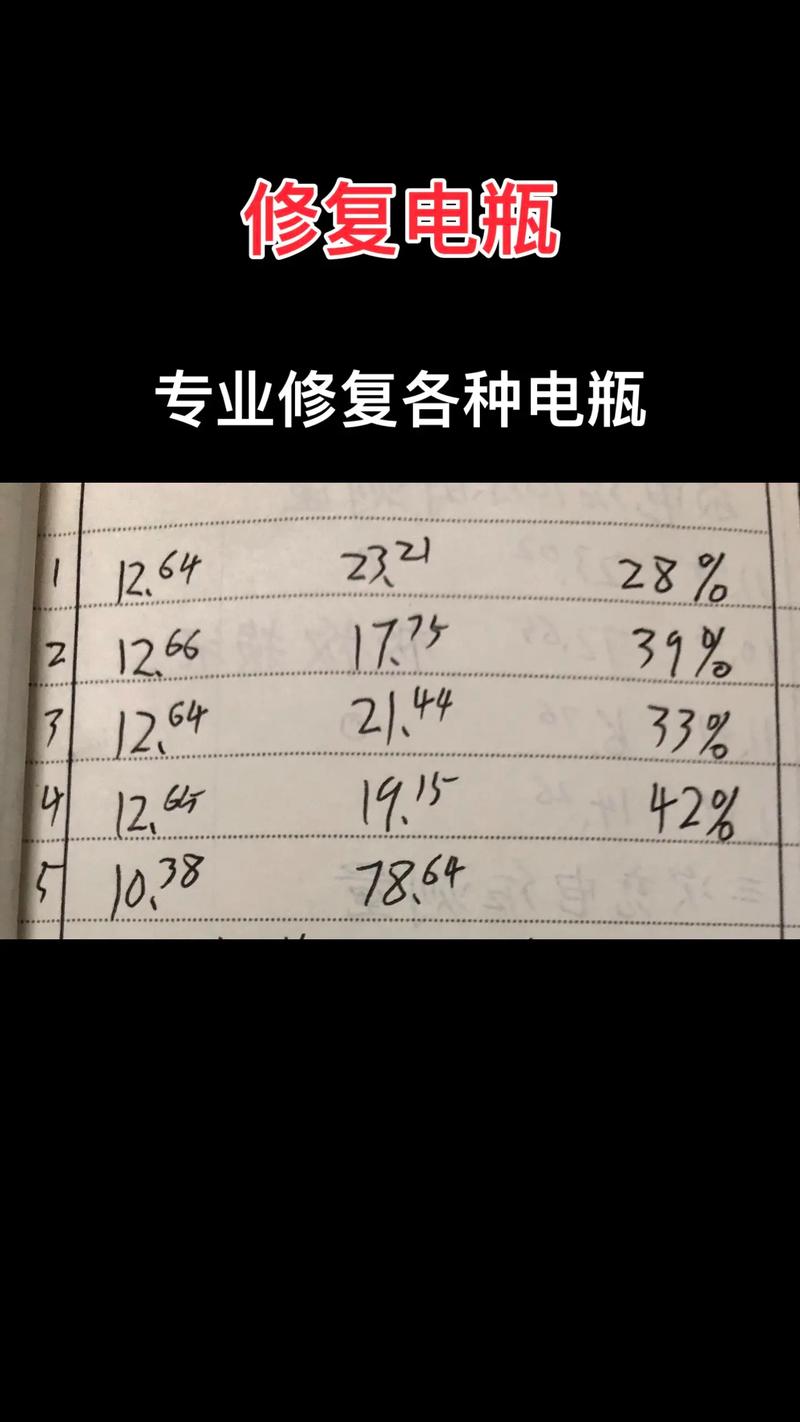 修复电瓶
专业修复各种电瓶
1 12.64 23.21 28%
2 12.66 17.75 39%
3 12.64 21.44 33%
4 12.65 19.15 42%
5 10.38 78.64